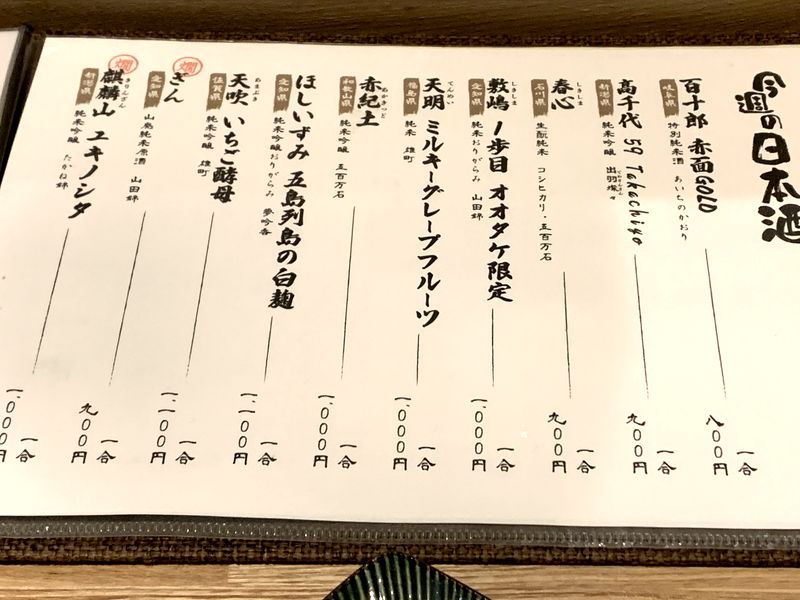 今週の日本酒
百十郎 赤面GOLD 八〇〇円 一合
岐阜県 特別純米酒 あいちのかおり
高千代 59 Takachiyo 九〇〇円 一合
新潟県 純米吟醸 出羽燦々
春心 九〇〇円 一合
石川県 生酛純米 コシヒカリ・五百万石
敷嶋 1歩目 オオタケ限定 一、〇〇〇円 一合
しきしま
愛知県 純米吟醸おりがらみ 山田錦
天明 ミルキーグレープフルーツ 一、〇〇〇円 一合
てんめい
福島県 純米 雄町
赤紀土 一、〇〇〇円 一合
あかきっど
和歌山県 純米吟醸 五百万石
ほしいずみ 五島列島の白麹 一、一〇〇円 一合
愛知県 純米吟醸おりがらみ 夢吟香
天吹 いちご酵母 一、一〇〇円 一合
あまぶき
佐賀県 純米吟醸 雄町
燗
ぎん 九〇〇円 一合
愛知県 山廃純米原酒 山田錦
燗
麒麟山 ユキノシタ 一、〇〇〇円 一合
きりんざん
新潟県 純米吟醸 たかね錦